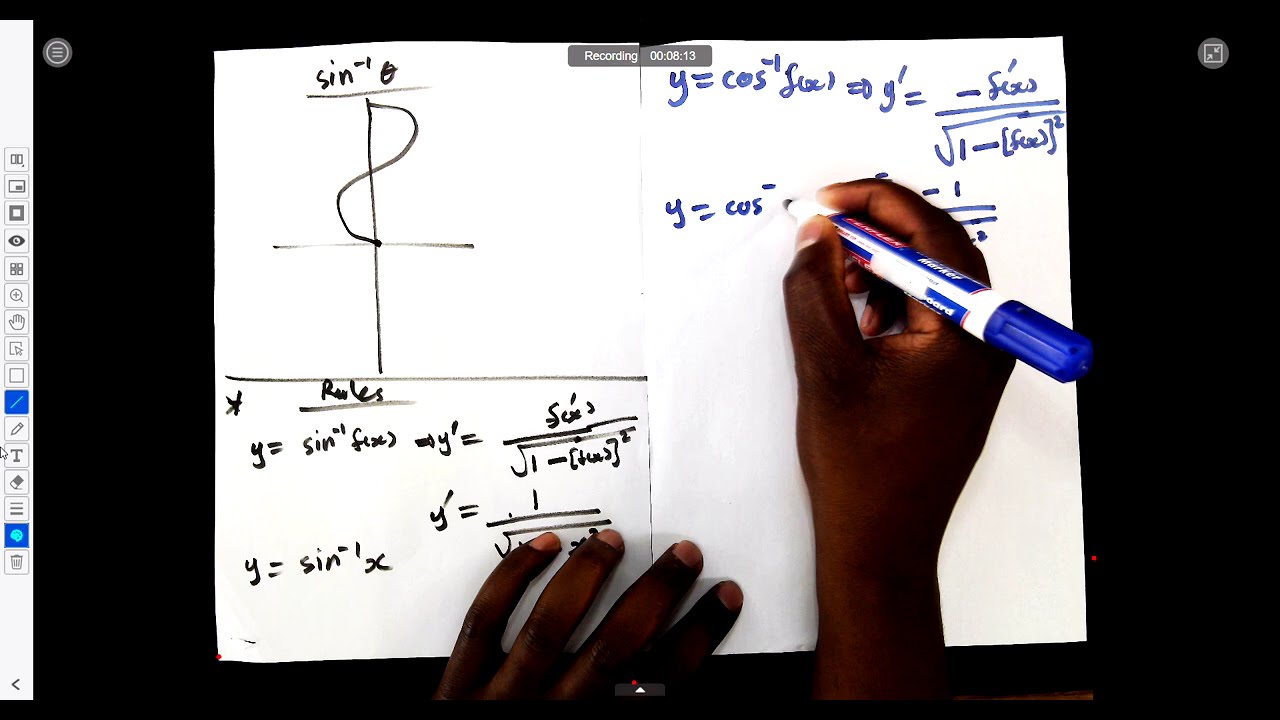 Recording 00:08:13
sin⁻¹ θ
* Rules
y = sin⁻¹ f(x) ⇒ y' = f'(x) / √1 − [f(x)]²
y' = 1 / √ x²
y = sin⁻¹ x
y = cos⁻¹ f(x) ⇒ y' = −f'(x) / √1 − [f(x)]²
y = cos⁻ −1
2
Marker